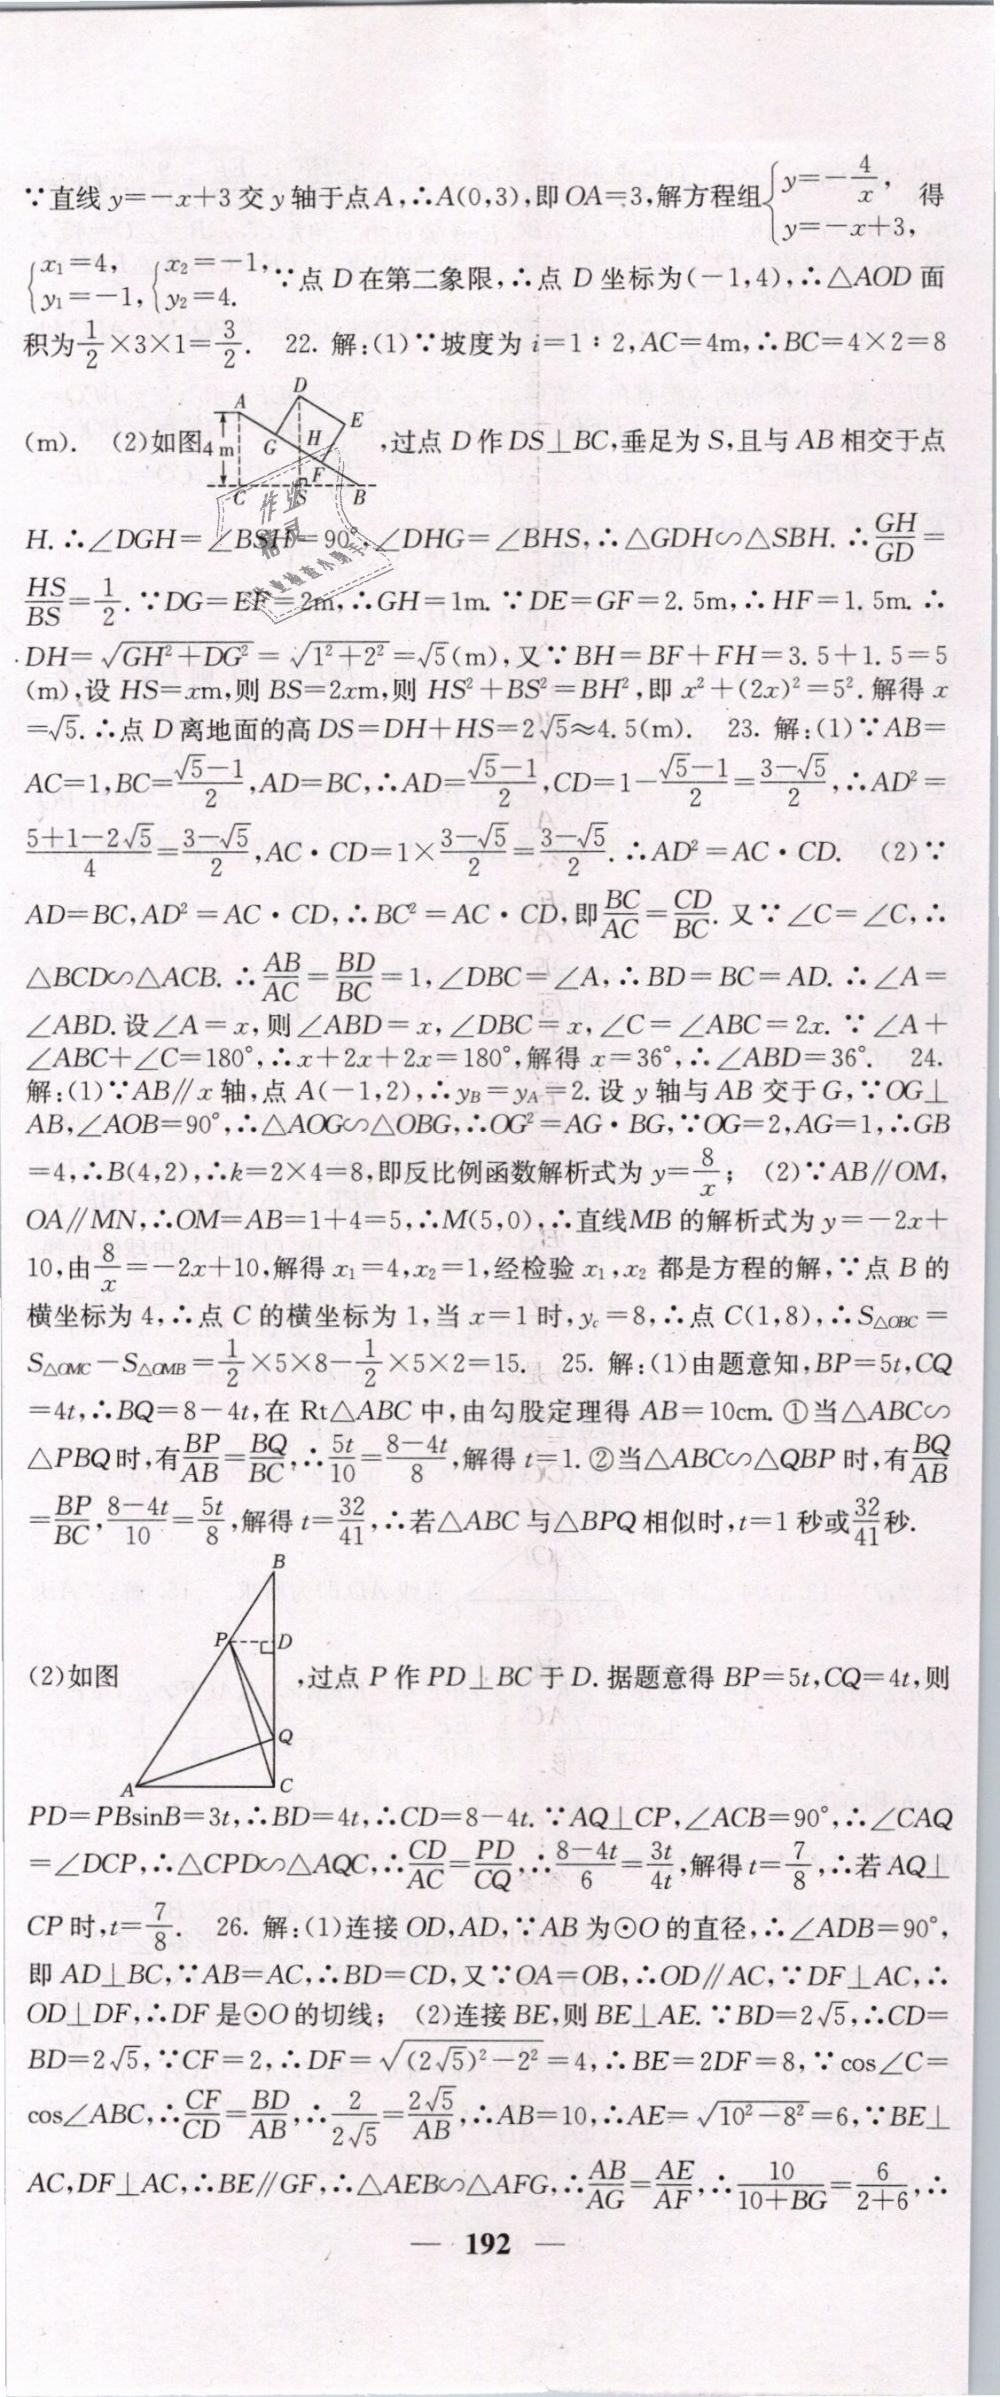 ∵直线 y=-x+3 交 y 轴于点 A,∴A(0,3),即 OA=3,解方程组{y=-4/x, y=-x+3, 得
{x₁=4, y₁=-1, {x₂=-1, y₂=4. ∵点 D 在第二象限,∴点 D 坐标为(-1,4),∴△AOD 面
积为1/2×3×1=3/2. 22. 解:(1)∵坡度为 i=1∶2,AC=4m,∴BC=4×2=8
(m). (2)如图 A D E G H 4 m F C S B ,过点 D 作 DS⊥BC,垂足为 S,且与 AB 相交于点
H.∴∠DGH=∠BSH=90°,∠DHG=∠BHS,∴△GDH∽△SBH.∴GH/GD=
HS/BS=1/2.∵DG=EF=2m,∴GH=1m.∵DE=GF=2.5m,∴HF=1.5m.∴
DH=√(GH²+DG²)=√(1²+2²)=√5(m),又∵BH=BF+FH=3.5+1.5=5
(m),设 HS=xm,则 BS=2xm,则 HS²+BS²=BH²,即 x²+(2x)²=5².解得 x
=√5.∴点 D 离地面的高 DS=DH+HS=2√5≈4.5(m). 23. 解:(1)∵AB=
AC=1,BC=(√5-1)/2,AD=BC,∴AD=(√5-1)/2,CD=1-(√5-1)/2=(3-√5)/2,∴AD²=
(5+1-2√5)/4=(3-√5)/2,AC·CD=1×(3-√5)/2=(3-√5)/2.∴AD²=AC·CD. (2)∵
AD=BC,AD²=AC·CD,∴BC²=AC·CD,即BC/AC=CD/BC.又∵∠C=∠C,∴
△BCD∽△ACB.∴AB/AC=BD/BC=1,∠DBC=∠A,∴BD=BC=AD.∴∠A=
∠ABD.设∠A=x,则∠ABD=x,∠DBC=x,∠C=∠ABC=2x.∵∠A+
∠ABC+∠C=180°,∴x+2x+2x=180°,解得 x=36°,∴∠ABD=36°. 24.
解:(1)∵AB∥x 轴,点 A(-1,2),∴y_B=y_A=2.设 y 轴与 AB 交于 G,∵OG⊥
AB,∠AOB=90°,∴△AOG∽△OBG,∴OG²=AG·BG,∵OG=2,AG=1,∴GB
=4,∴B(4,2),∴k=2×4=8,即反比例函数解析式为 y=8/x; (2)∵AB∥OM,
OA∥MN,∴OM=AB=1+4=5,∴M(5,0),∴直线MB 的解析式为 y=-2x+
10,由8/x=-2x+10,解得 x₁=4,x₂=1,经检验 x₁,x₂ 都是方程的解,∵点 B 的
横坐标为 4,∴点 C 的横坐标为 1,当 x=1 时,y_c=8,∴点 C(1,8),∴S△OBC=
S△OMC-S△OMB=1/2×5×8-1/2×5×2=15. 25. 解:(1)由题意知,BP=5t,CQ
=4t,∴BQ=8-4t,在 Rt△ABC 中,由勾股定理得 AB=10cm.①当△ABC∽
△PBQ时,有BP/AB=BQ/BC,∴5t/10=(8-4t)/8,解得 t=1.②当△ABC∽△QBP 时,有BQ/AB
=BP/BC,(8-4t)/10=5t/8,解得 t=32/41,∴若△ABC 与△BPQ 相似时,t=1 秒或32/41秒.
(2)如图 B P D Q A C ,过点 P 作 PD⊥BC 于 D.据题意得 BP=5t,CQ=4t,则
PD=PBsinB=3t,∴BD=4t,∴CD=8-4t.∵AQ⊥CP,∠ACB=90°,∴∠CAQ
=∠DCP,∴△CPD∽△AQC,∴CD/AC=PD/CQ,∴(8-4t)/6=3t/4t,解得 t=7/8,∴若 AQ⊥
CP 时,t=7/8. 26. 解:(1)连接 OD,AD,∵AB 为⊙O 的直径,∴∠ADB=90°,
即 AD⊥BC,∵AB=AC,∴BD=CD,又∵OA=OB,∴OD∥AC,∵DF⊥AC,∴
OD⊥DF,∴DF 是⊙O 的切线; (2)连接 BE,则 BE⊥AE.∵BD=2√5,∴CD=
BD=2√5,∵CF=2,∴DF=√((2√5)²-2²)=4,∴BE=2DF=8,∵cos∠C=
cos∠ABC,∴CF/CD=BD/AB,∴2/(2√5)=2√5/AB,∴AB=10,∴AE=√(10²-8²)=6,∵BE⊥
AC,DF⊥AC,∴BE∥GF,∴△AEB∽△AFG,∴AB/AG=AE/AF,∴10/(10+BG)=6/(2+6),∴
— 192 —